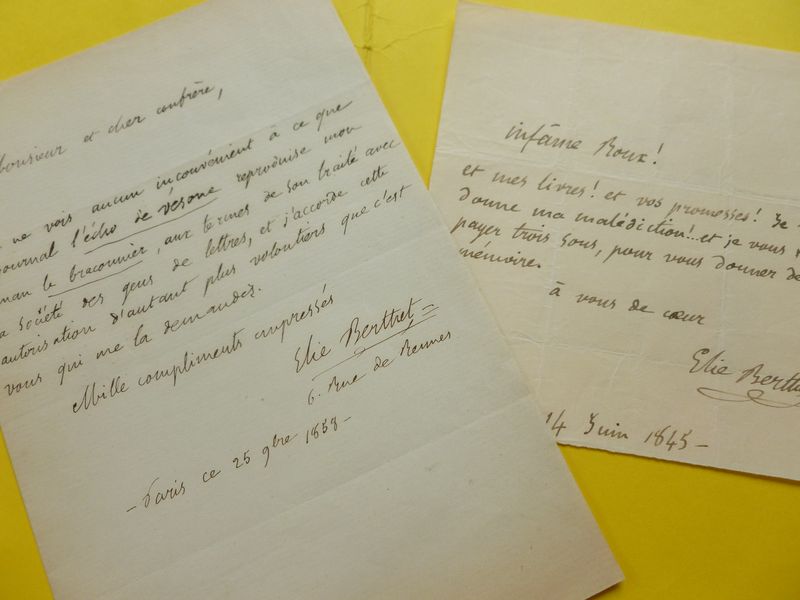 Monsieur et cher confrère,
ne vois aucun inconvénient à ce que
journal l'écho de vésone reproduise mon
man le braconnier, aux termes de son traité avec
a Société des gens de lettres, et j'accorde cette
autorisation d'autant plus volontiers que c'est
vous qui me la demandez.
Mille compliments empressés
Elie Berthet
6. Rue de Rennes
- Paris ce 25 9bre 1858 -
infâme Roux!
et mes livres! et vos promesses! Je
donne ma malédiction!.. et je vous
payer trois sous, pour vous donner de
mémoire.
à vous de cœur
Elie Berth
14 Juin 1845 -